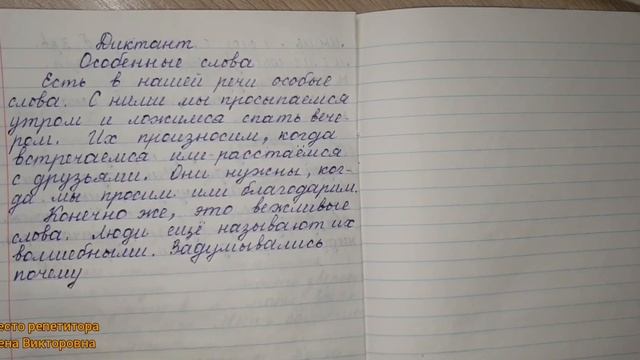 Диктант
Особенные слова
Есть в нашей речи особые
слова. С ними мы просыпаемся
утром и ложимся спать вече-
ром. Их произносим, когда
встречаемся или расстаёмся
с друзьями. Они нужны, ког-
да мы просим или благодарим.
Конечно же, это вежливые
слова. Люди ещё называют их
волшебными. Задумывались
почему
есто репетитора
ена Викторовна